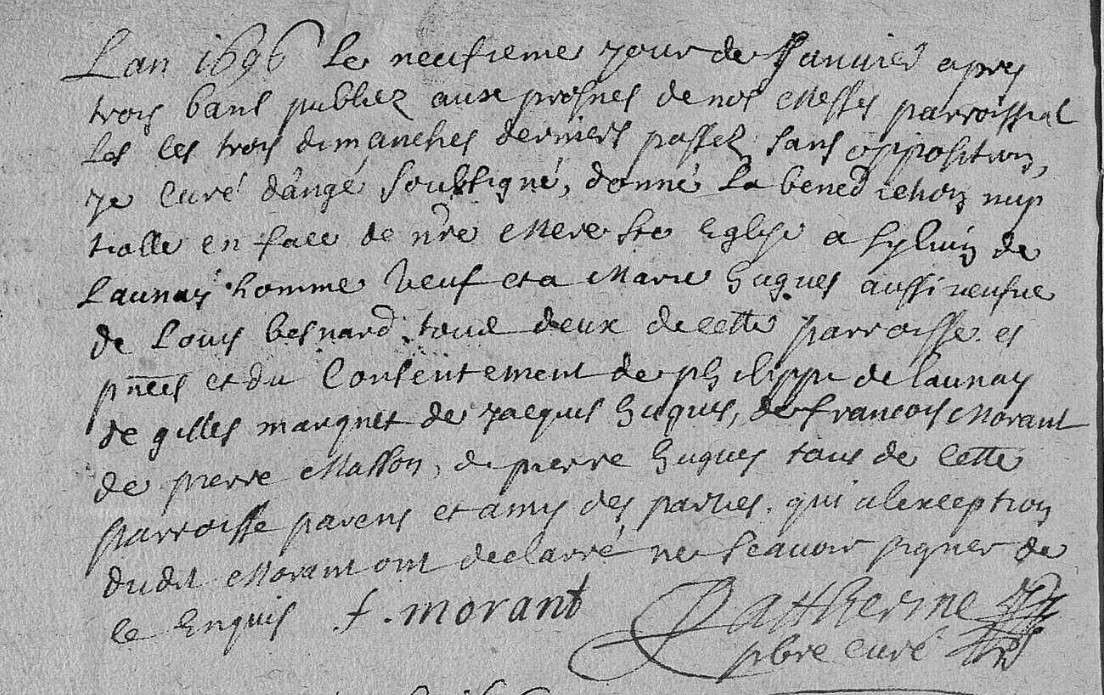 Lan 1696 le neufieme jour de Janvier apres
trois bans publiez aux prosnes de nos Messes parroissial
les les trois dimanches derniers passez sans opposition,
je Curé dangé soubsigné, donné la benediction nup
tialle en face de nre Mere ste Eglise a Sylvin de
Launay homme veuf et a Marie Hugues aussi veufve
de Louis besnard tous deux de cette parroisse es
pnces et du Consentement de philippe de launay
de gilles marquet de jacques hugues, de francois Morant
de pierre Masson, de pierre hugues tous de cette
parroisse parens et amys des parties. qui a lexception
dudit Morant ont declarré ne scavoir signer de
ce Enquis f. morant
pbre curé